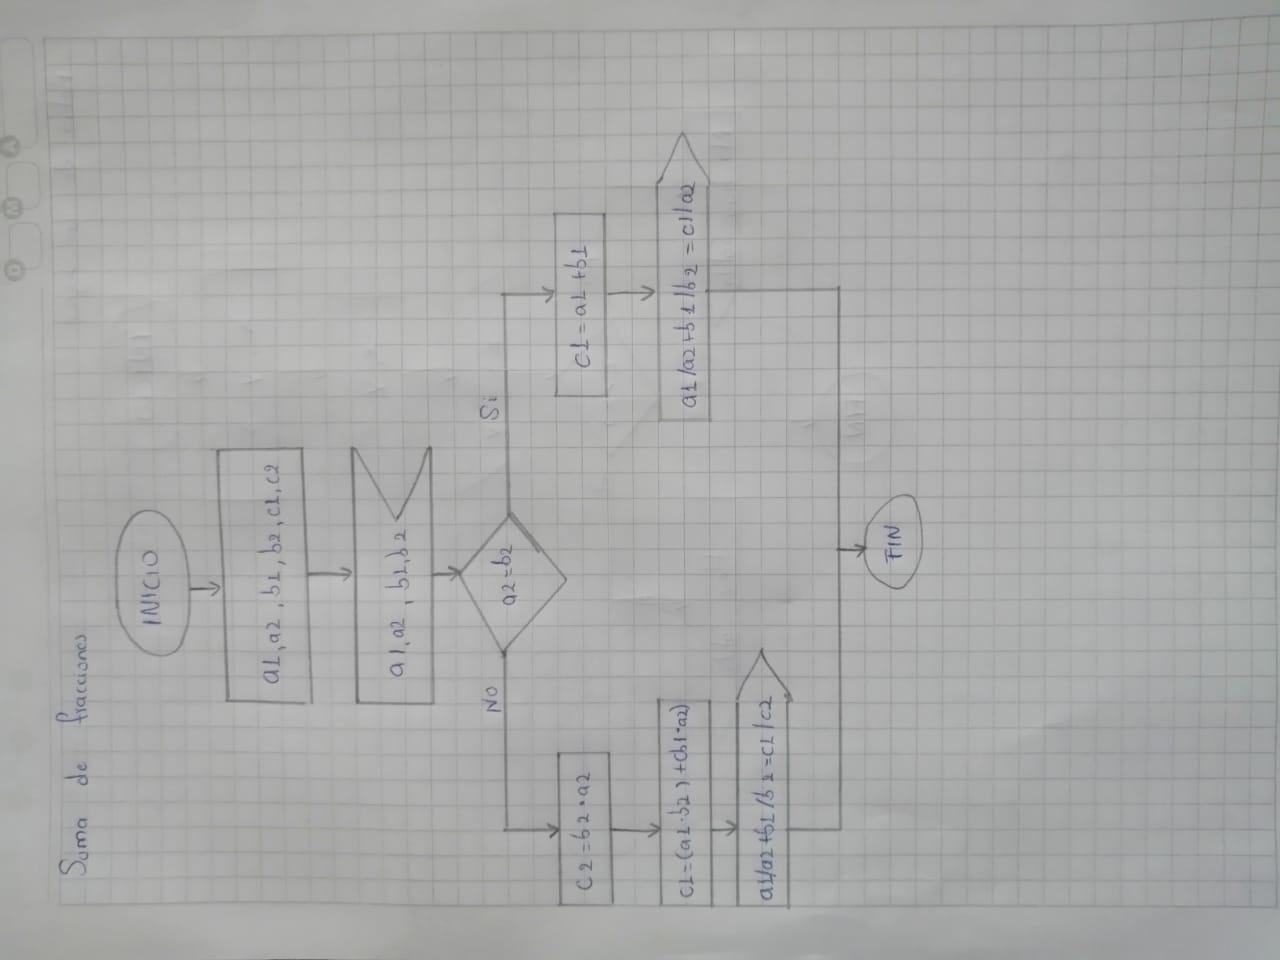 Suma de fracciones
INICIO
a1, a2, b1, b2, c1, c2
a1, a2, b1, b2
a2=b2
No
Si
C2=b2*a2
C1=(a1*b2)+(b1*a2)
a1/a2+b1/b2=c1/c2
C1=a1+b1
a1/a2+b1/b2=c1/a2
FIN